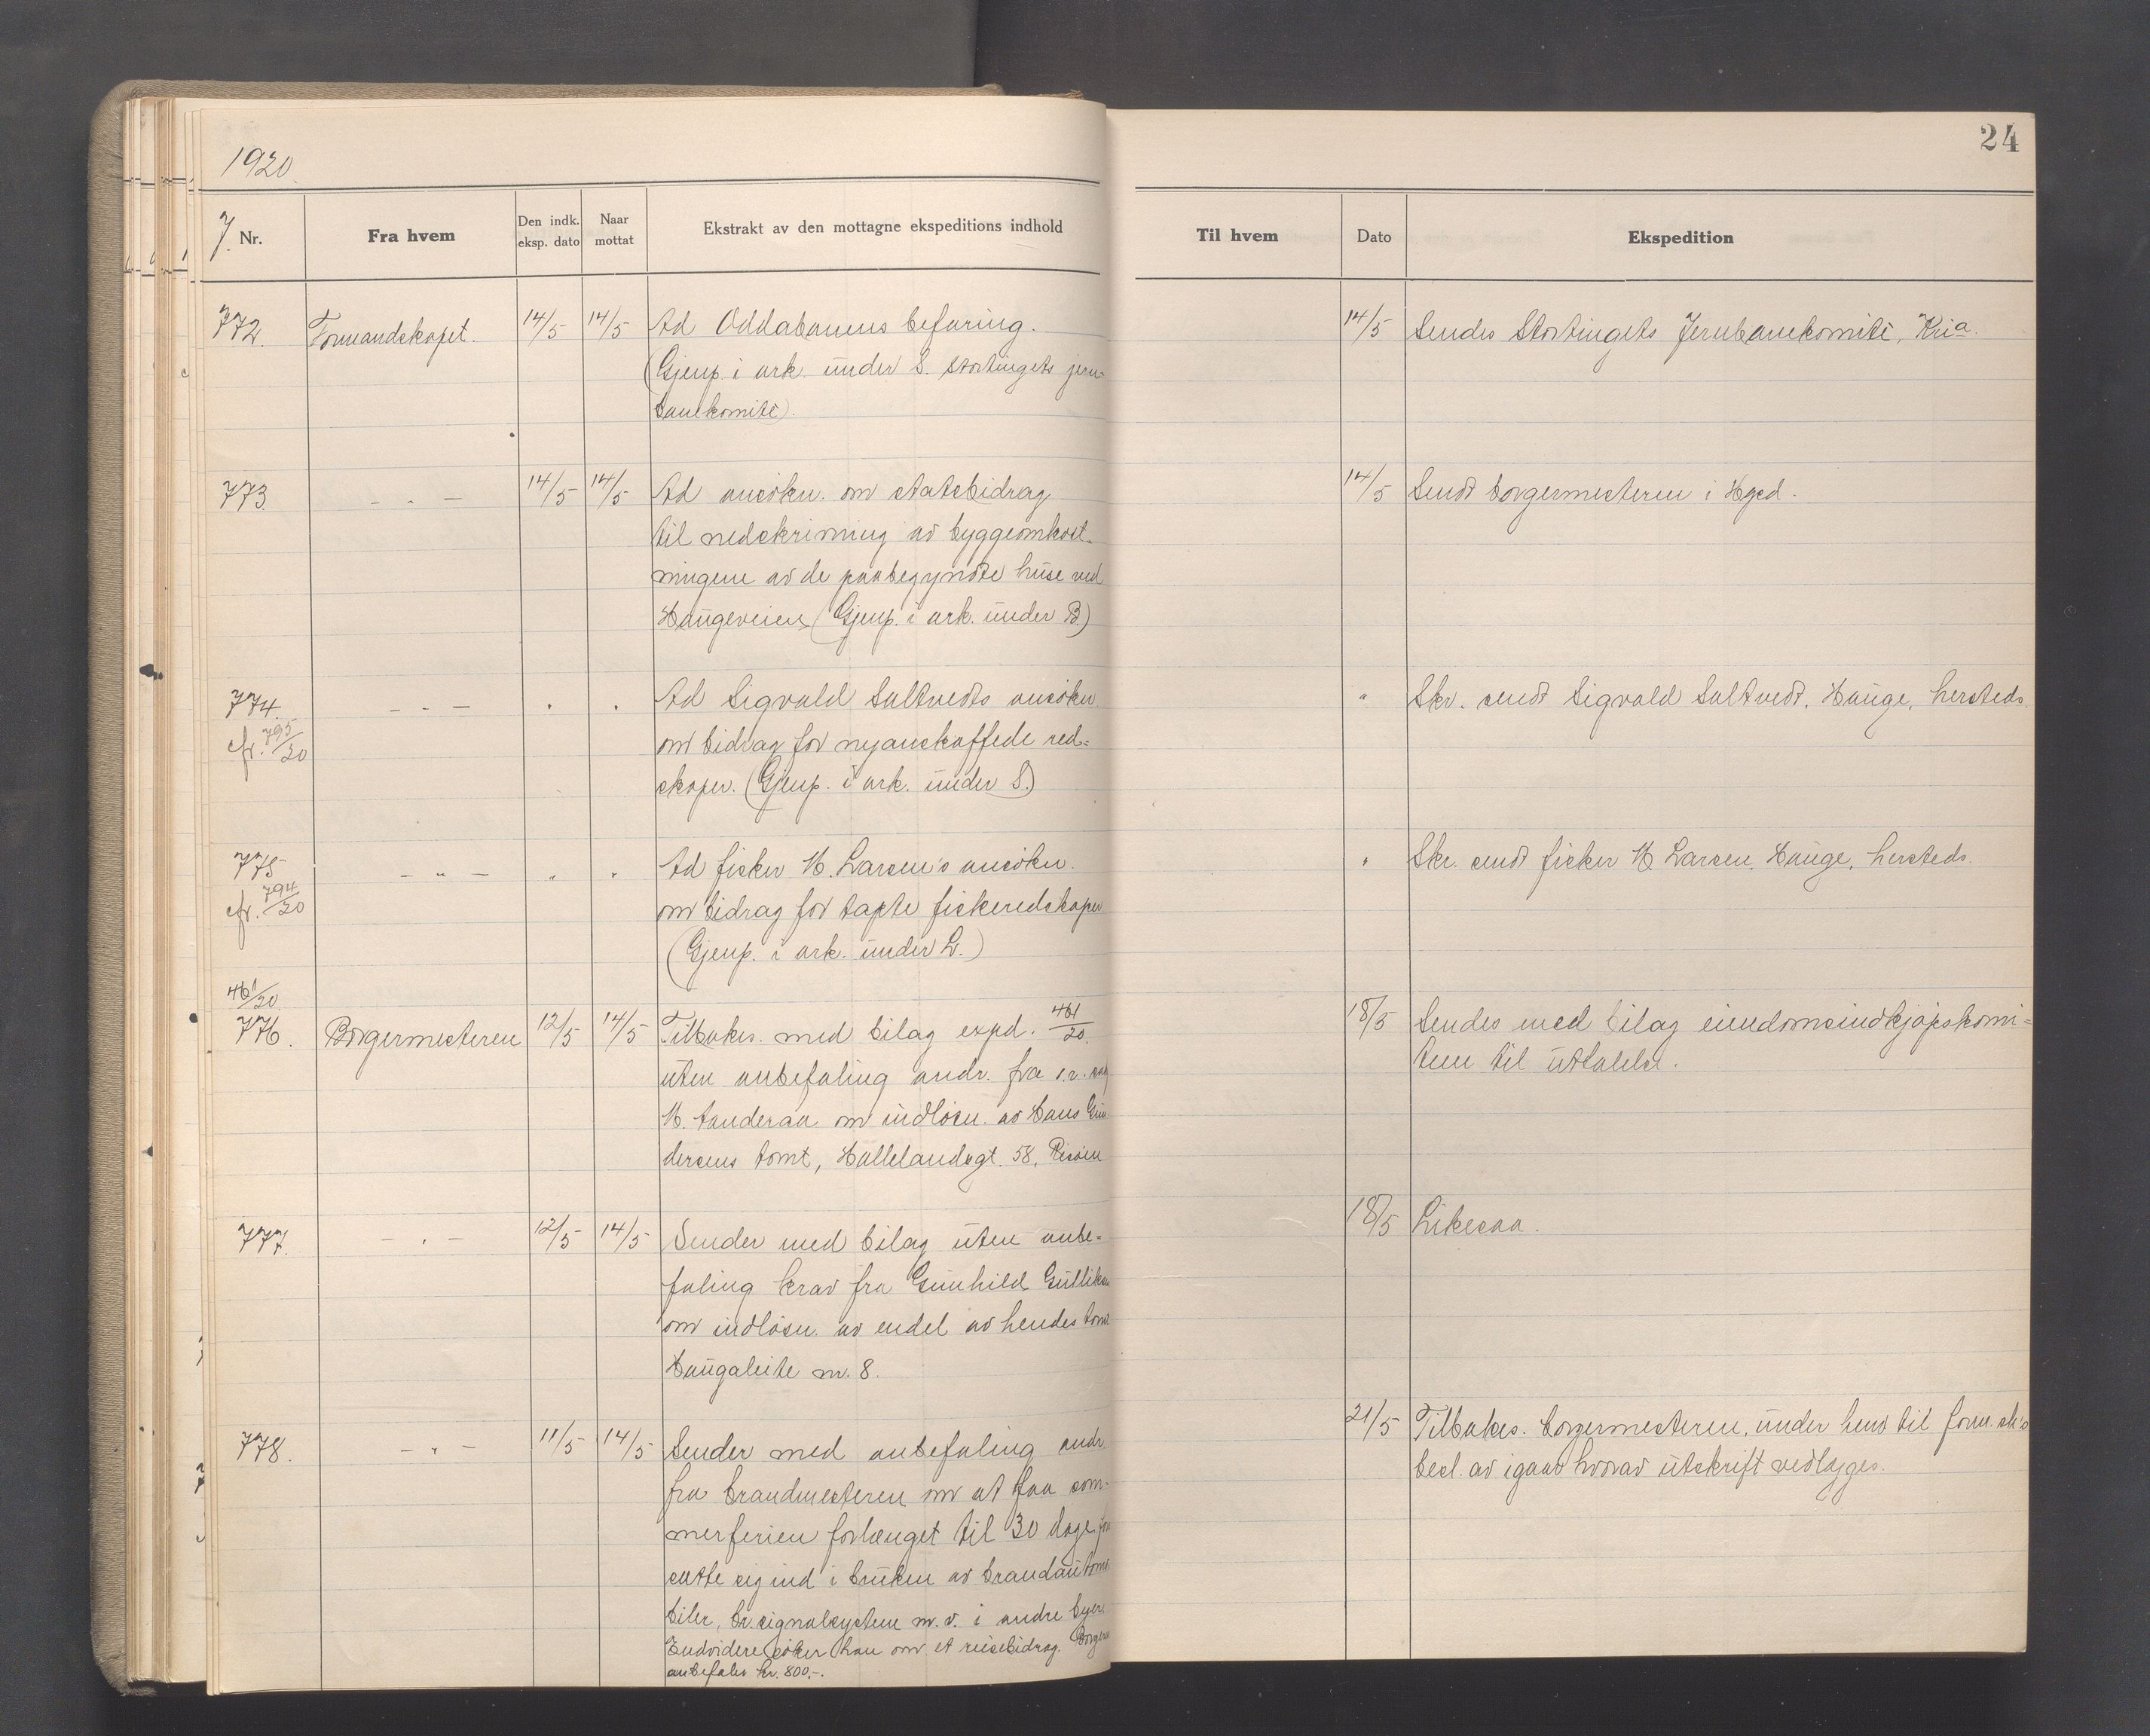 24
1920.
J. Nr.
Fra hvem
Den indk. eksp. dato
Naar mottat
Ekstrakt av den mottagne ekspeditions indhold
Til hvem
Dato
Ekspedition
772. Formandskapet. 14/5 14/5 Ad Oddabanens befaring. 14/5 Sendes Stortingets Jernbanekomité, Kria.
(Gjenp. i ark. under S. stortingets jern-
banekomité).
773. - " - 14/5 14/5 Ad ansökn. om statsbidrag 14/5 Sendt borgermesteren i Hgsd.
til nedskrivning av byggeomkost-
ningene av de paabegyndte huse ved
Haugeveien (Gjenp. i ark. under B)
774. - " - " " Ad Sigvald Saltvedts ansökn " Skr. sendt Sigvald Saltvedt, Hauge, hersteds.
cfr. 795/20 om bidrag for nyanskaffede red-
skaper. (Gjenp. i ark. under S.)
775 - " - " " Ad fisker M. Larsen's ansökn. " Skr. sendt fisker M Larsen. Hauge, hersteds.
cfr. 794/20 om bidrag for tapte fiskeredskaper
(Gjenp. i ark. under L.)
461/20
776. Borgermesteren 12/5 14/5 Tilbakes. med bilag expd. 461/20. 18/5 Sendes med bilag eiendomsindkjøpskomi-
uten anbefaling andr. fra o.r. sag teen til uttalelse.
M. om indløsn. av Hans Gun
dersens tomt, Hallelandsgt. 58, Risøen
777. - " - 12/5 14/5 Sender med bilag uten anbe- 18/5 Likesaa.
faling krav fra Gunhild Gulliksen
om indløsn. av endel av hendes tomt
Haugaleite nr. 8.
778. - " - 11/5 14/5 Sender med anbefaling andr. 21/5 Tilbakes. borgermesteren, under henv til form. sk's
fra brandmesteren om at faa som- besl. av igaar hvorav utskrift vedlægges.
merferien forlænget til 30 dage for
sætte sig ind i bruken av brandautomo
biler, br.signalsystem m.v. i andre byer.
Endvidere søker han om et reisebidrag. Borgerm
anbefaler kr. 800,-.